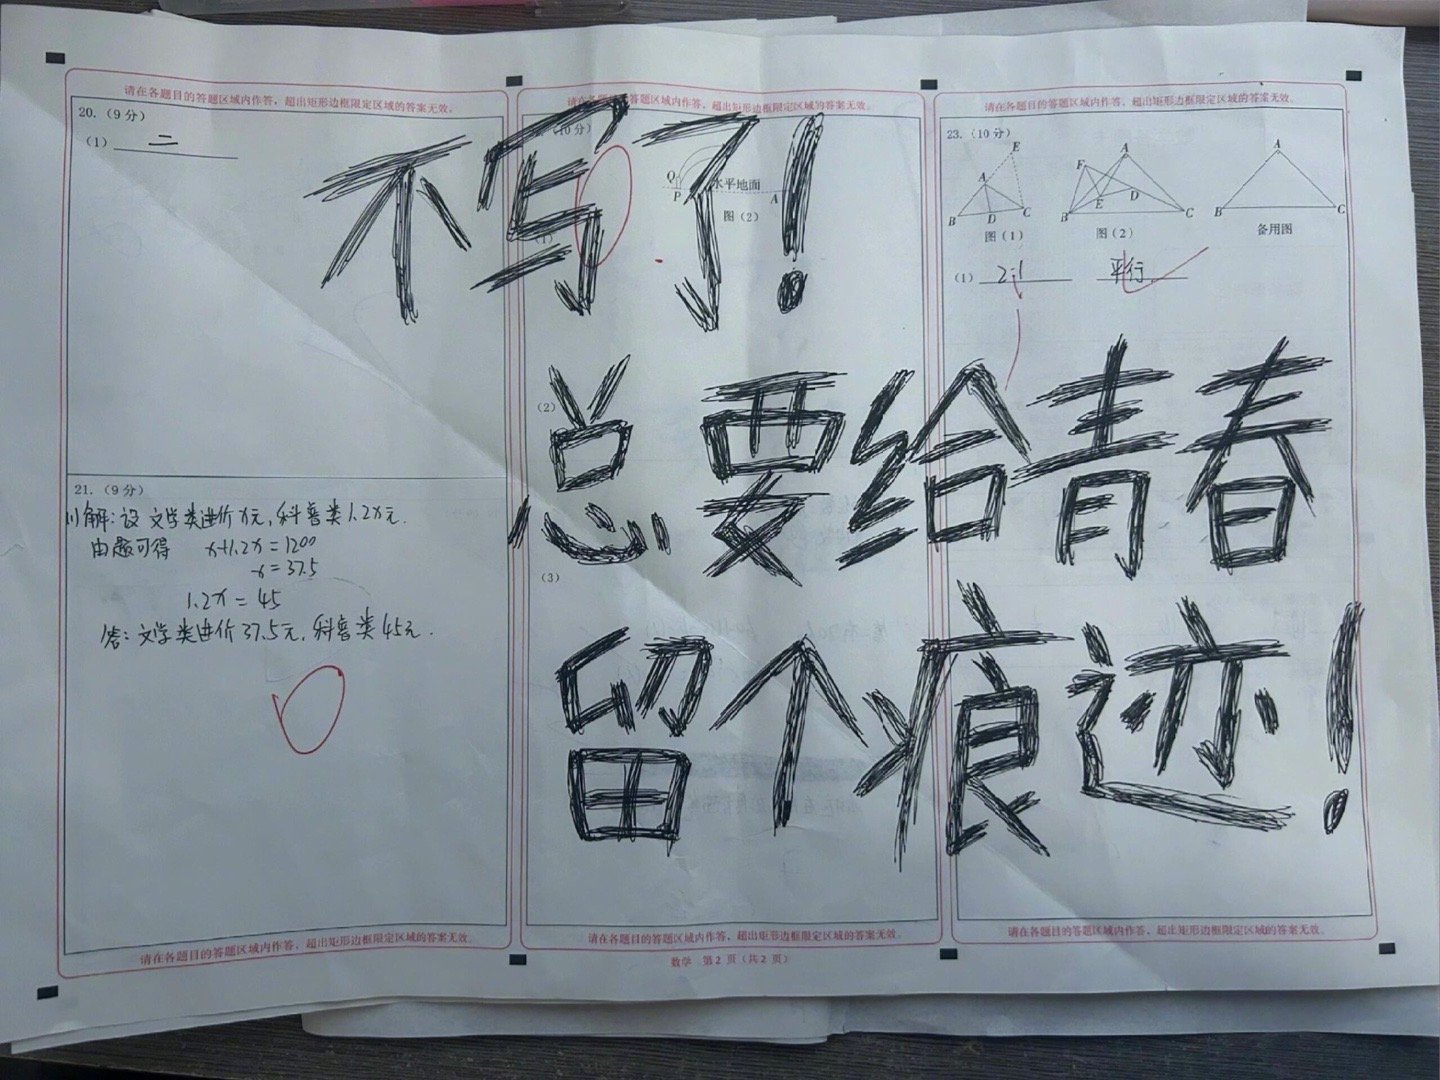 请在各题目的答题区域内作答，超出矩形边框限定区域的答案无效。
20.（9分）
（1） 二
21.（9分）
11解：设文学类进价x元，科普类1.2x元.
由题可得 x+1.2x=1200
x=37.5
1.2x=45
答：文学类进价37.5元，科普类45元.
请在各题目的答题区域内作答，超出矩形边框限定区域的答案无效。
请在各题目的答题区域内作答，超出矩形边框限定区域的答案无效。
（10分）
Q
P
水平地面
A
图（2）
（1）
（2）
（3）
不写了！
总要给青春
留个痕迹！
请在各题目的答题区域内作答，超出矩形边框限定区域的答案无效。
数学 第2页（共2页）
请在各题目的答题区域内作答，超出矩形边框限定区域的答案无效。
23.（10分）
E
A
B
D
C
图（1）
A
F
E
D
B
C
图（2）
A
B
C
备用图
（1） 2:1 平行
请在各题目的答题区域内作答，超出矩形边框限定区域的答案无效。